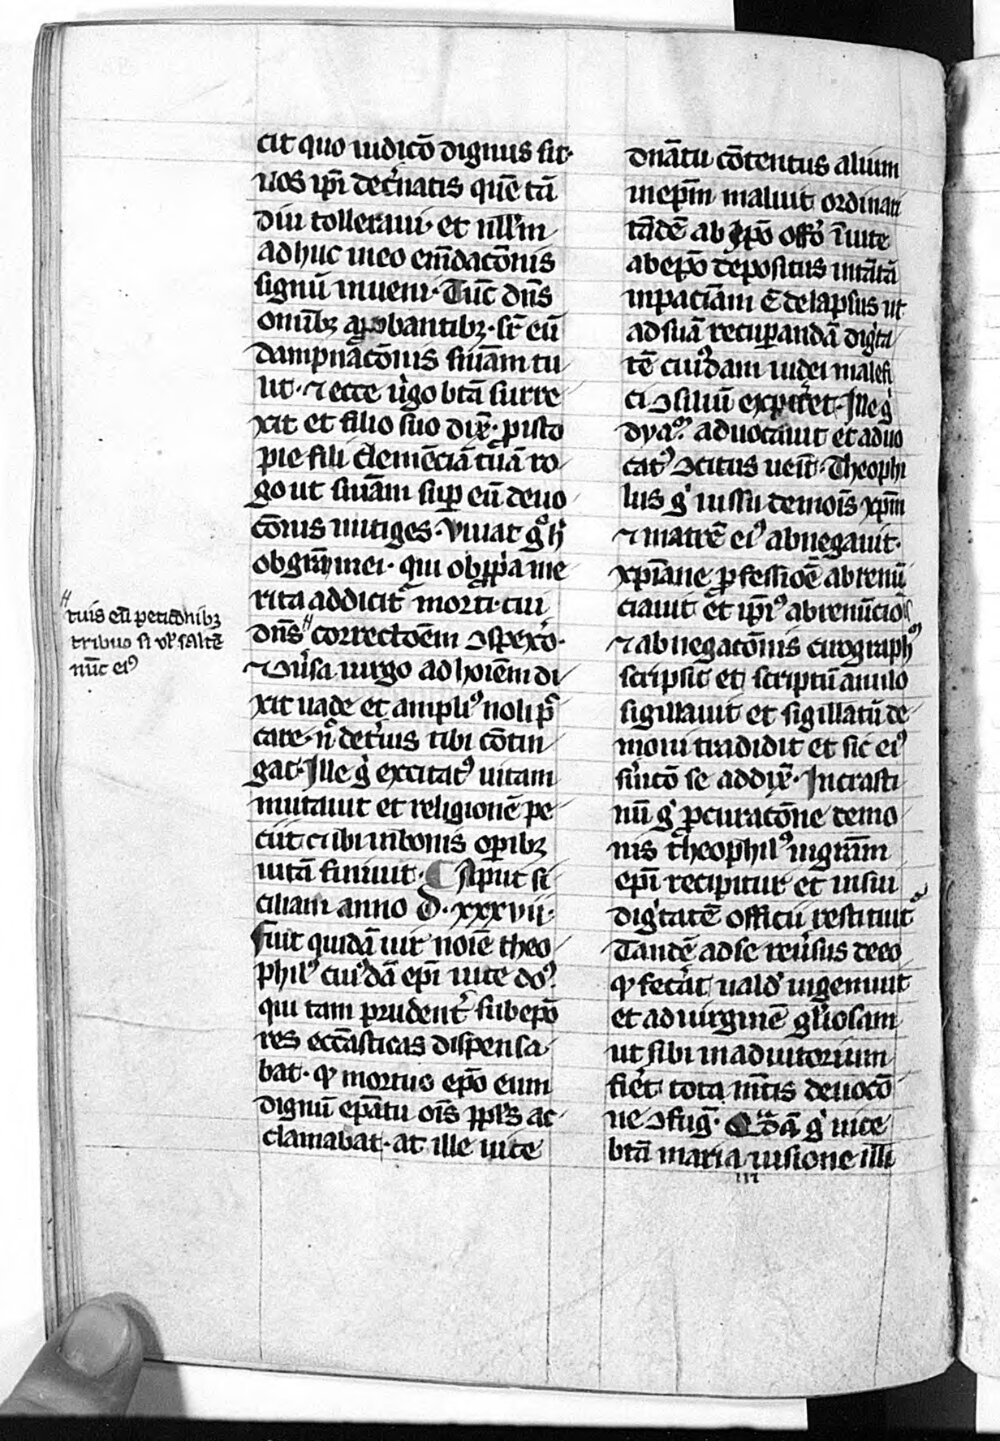 cit quo iudicō dignus sit·
uos ip̄i dec͛natis quē tā
diu tolleraui· et nll̄m
ad huc in eo em̄dacōnis
signū inueni· Tūc dn̄s
om̄ibꝫ app͛obantibꝫ· ꝯt͛ eū
dampnacōnis sniam tu
lit· ⁊ ecce uirgo btā surre
xit et filio suo dix̄· p̱isto
pie fili clemēciā tuā ro
go ut sniam sup̱ eū deuo
cōnis mitiges· Viuat g͛ h̄
ob grām mei· qui ob p̱p̱a me
rita addicit᷑ morti· cui
dn̄s〃 correctoēm ꝯspex͛o·
⁊ Ūsa uirgo ad hoiēm di
xit uade et ampliꝰ noli p̄
care· n̄ det͛ius tibi cōtin
gat· Ille g͛ excitatꝰ uitam
mutauit et religionē pe
ciit et ibi in bonis op̱ibꝫ
uitā finiuit· ¶ Aput si
ciliam anno D·xxxvii·
Fuit quidā uir noīe theo
philꝰ cuiꝰdā ep̄i uice doꝰ
qui tam prudent͛ sub ep̄o
res ecc̄asticas dispensa
bat· ꝙ mortuo ep̄o eum
dignū ep̄atu oīs pp̄l̄s ac
clamabat· at ille uice
〃 tuis eū peticōnibꝫ
tribuo si ul͛ saltē
nūc eiꝰ
dn̄atu cōtentus alium
in ep̄m maluit ordinari
tādē ab ip̄o off͛o īuite
ab ep̄o depositus in tātā
inpaciam ē delapsus ut
ad suā recup̱andā dig͛ta
tē cuiꝰdam iudei malefi
ci ꝯsiliū expet͛et· Ille g͛
dyaꝰ aduocauit et aduo
catꝰ ꝯcitus ueīt· Theophi
lus g͛ iussu demoīs xp̄m
⁊ matrē eiꝰ abnegauit·
xp̄iane p̱fessioē abrenū
ciauit et ip̄iꝰ abrenūcioīs
⁊ abnegacōnis cirographꝰ
scripsit et scriptū anulo
sigillauit et sigillatū de
moni tradidit et sic eiꝰ
s͛uicō se addix̄· In crasti
nū g͛ p̱curacōne demo
nis theophilꝰ in grām
ep̄i recipitur et in sui
dig͛tatē officii restituit᷑
Tandē ad se reu͛sus de eo
ꝙ fec͛at uald͛ ingemuit
et ad uirginē gl͛iosam
ut sibi in adiutorium
fiēt tota m̄tis deuocō
ne ꝯfuḡ· Qᵃdā g͛ uice
btā maria uisione illi
iii